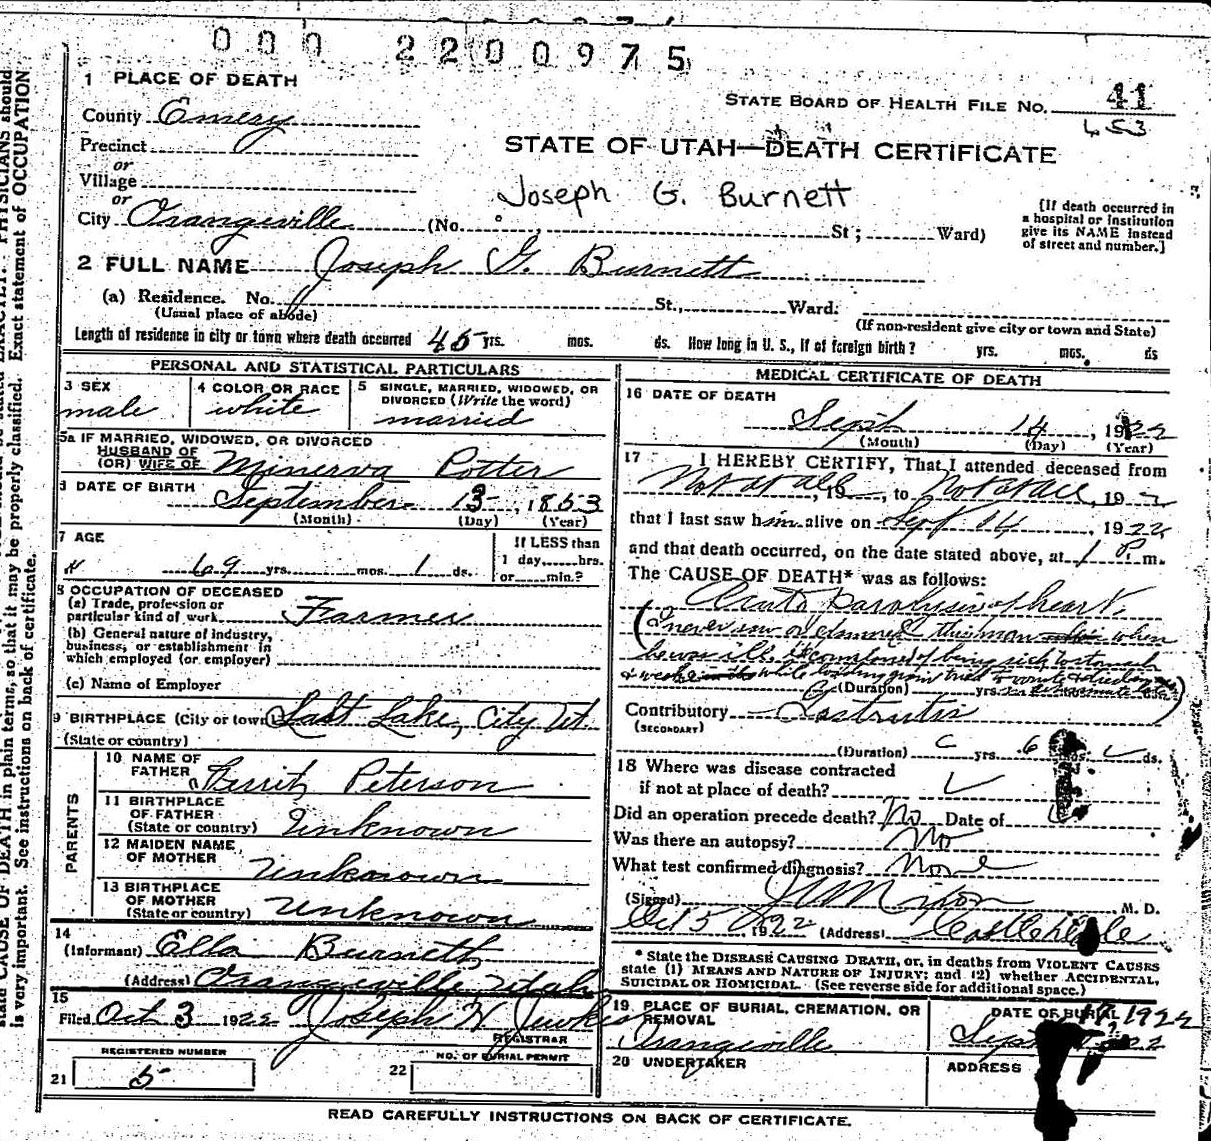 000 2200975
1 PLACE OF DEATH
STATE BOARD OF HEALTH FILE No. 41
653
County Emery
Precinct
or
Village
or
STATE OF UTAH—DEATH CERTIFICATE
Joseph G. Burnett
City Orangeville (No. St; Ward)
[If death occurred in
a hospital or institution
give its NAME instead
of street and number.]
2 FULL NAME Joseph G. Burnett
(a) Residence. No. St., Ward.
(Usual place of abode)
(If non-resident give city or town and State)
Length of residence in city or town where death occurred 45 yrs. mos. ds. How long in U. S., if of foreign birth? yrs. mos. ds
PERSONAL AND STATISTICAL PARTICULARS
3 SEX
male
4 COLOR OR RACE
white
5 SINGLE, MARRIED, WIDOWED, OR
DIVORCED (Write the word)
married
5a IF MARRIED, WIDOWED, OR DIVORCED
HUSBAND OF
(OR) WIFE OF Minerva Potter
DATE OF BIRTH September 13, 1853
(Month) (Day) (Year)
7 AGE
69 yrs. mos. 1 ds.
If LESS than
1 day, hrs.
or min.?
8 OCCUPATION OF DECEASED
(a) Trade, profession or
particular kind of work Farmer
(b) General nature of industry,
business, or establishment in
which employed (or employer)
(c) Name of Employer
9 BIRTHPLACE (City or town) Salt Lake, City Ut.
(State or country)
PARENTS
10 NAME OF
FATHER Peterson
11 BIRTHPLACE
OF FATHER
(State or country) Unknown
12 MAIDEN NAME
OF MOTHER Unknown
13 BIRTHPLACE
OF MOTHER
(State or country) Unknown
14
(Informant) Ella Burnett
(Address) Orangeville Utah
15
Filed Oct 3 1922 Joseph H Jewkes
REGISTRAR
REGISTERED NUMBER
21 5
NO. OF BURIAL PERMIT
22
MEDICAL CERTIFICATE OF DEATH
16 DATE OF DEATH
Sept 14, 1922
(Month) (Day) (Year)
17 I HEREBY CERTIFY, That I attended deceased from
Not at all, 19, to Not at all, 192
that I last saw him alive on Sept 14, 1922
and that death occurred, on the date stated above, at 1 P. m.
The CAUSE OF DEATH* was as follows:
Acute paralysis of heart.
(I never saw or examined this man when
he was ill. He complained of being sick to stomach
& weak while loading grain tried to
(Duration) yrs.
Contributory Gastritis
(SECONDARY)
(Duration) yrs. 6 mos. ds.
18 Where was disease contracted
if not at place of death?
Did an operation precede death? No Date of
Was there an autopsy? No
What test confirmed diagnosis? None
(Signed) M. D.
Oct 5 1922 (Address) Castledale
* State the DISEASE CAUSING DEATH, or, in deaths from VIOLENT CAUSES
state (1) MEANS AND NATURE OF INJURY; and (2) whether ACCIDENTAL,
SUICIDAL OR HOMICIDAL. (See reverse side for additional space.)
19 PLACE OF BURIAL, CREMATION, OR
REMOVAL
Orangeville
DATE OF BURIAL
17 1922
Sept
20 UNDERTAKER
ADDRESS
READ CAREFULLY INSTRUCTIONS ON BACK OF CERTIFICATE.
CAUSE OF DEATH in plain terms, so that it may be properly classified. Exact statement of OCCUPATION
is very important. See instructions on back of certificate.